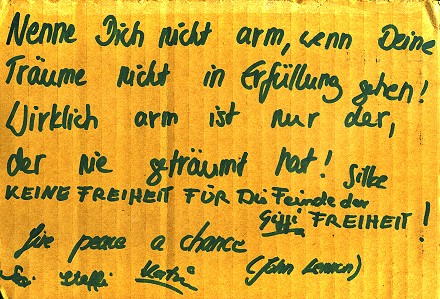 Nenne Dich nicht arm, wenn Deine
Träume nicht in Erfüllung gehen!
Wirklich arm ist nur der,
der nie geträumt hat! Silke
KEINE FREIHEIT FÜR Die Feinde der
FREIHEIT!
Give peace a chance
Steffi Katrin (John Lennon)